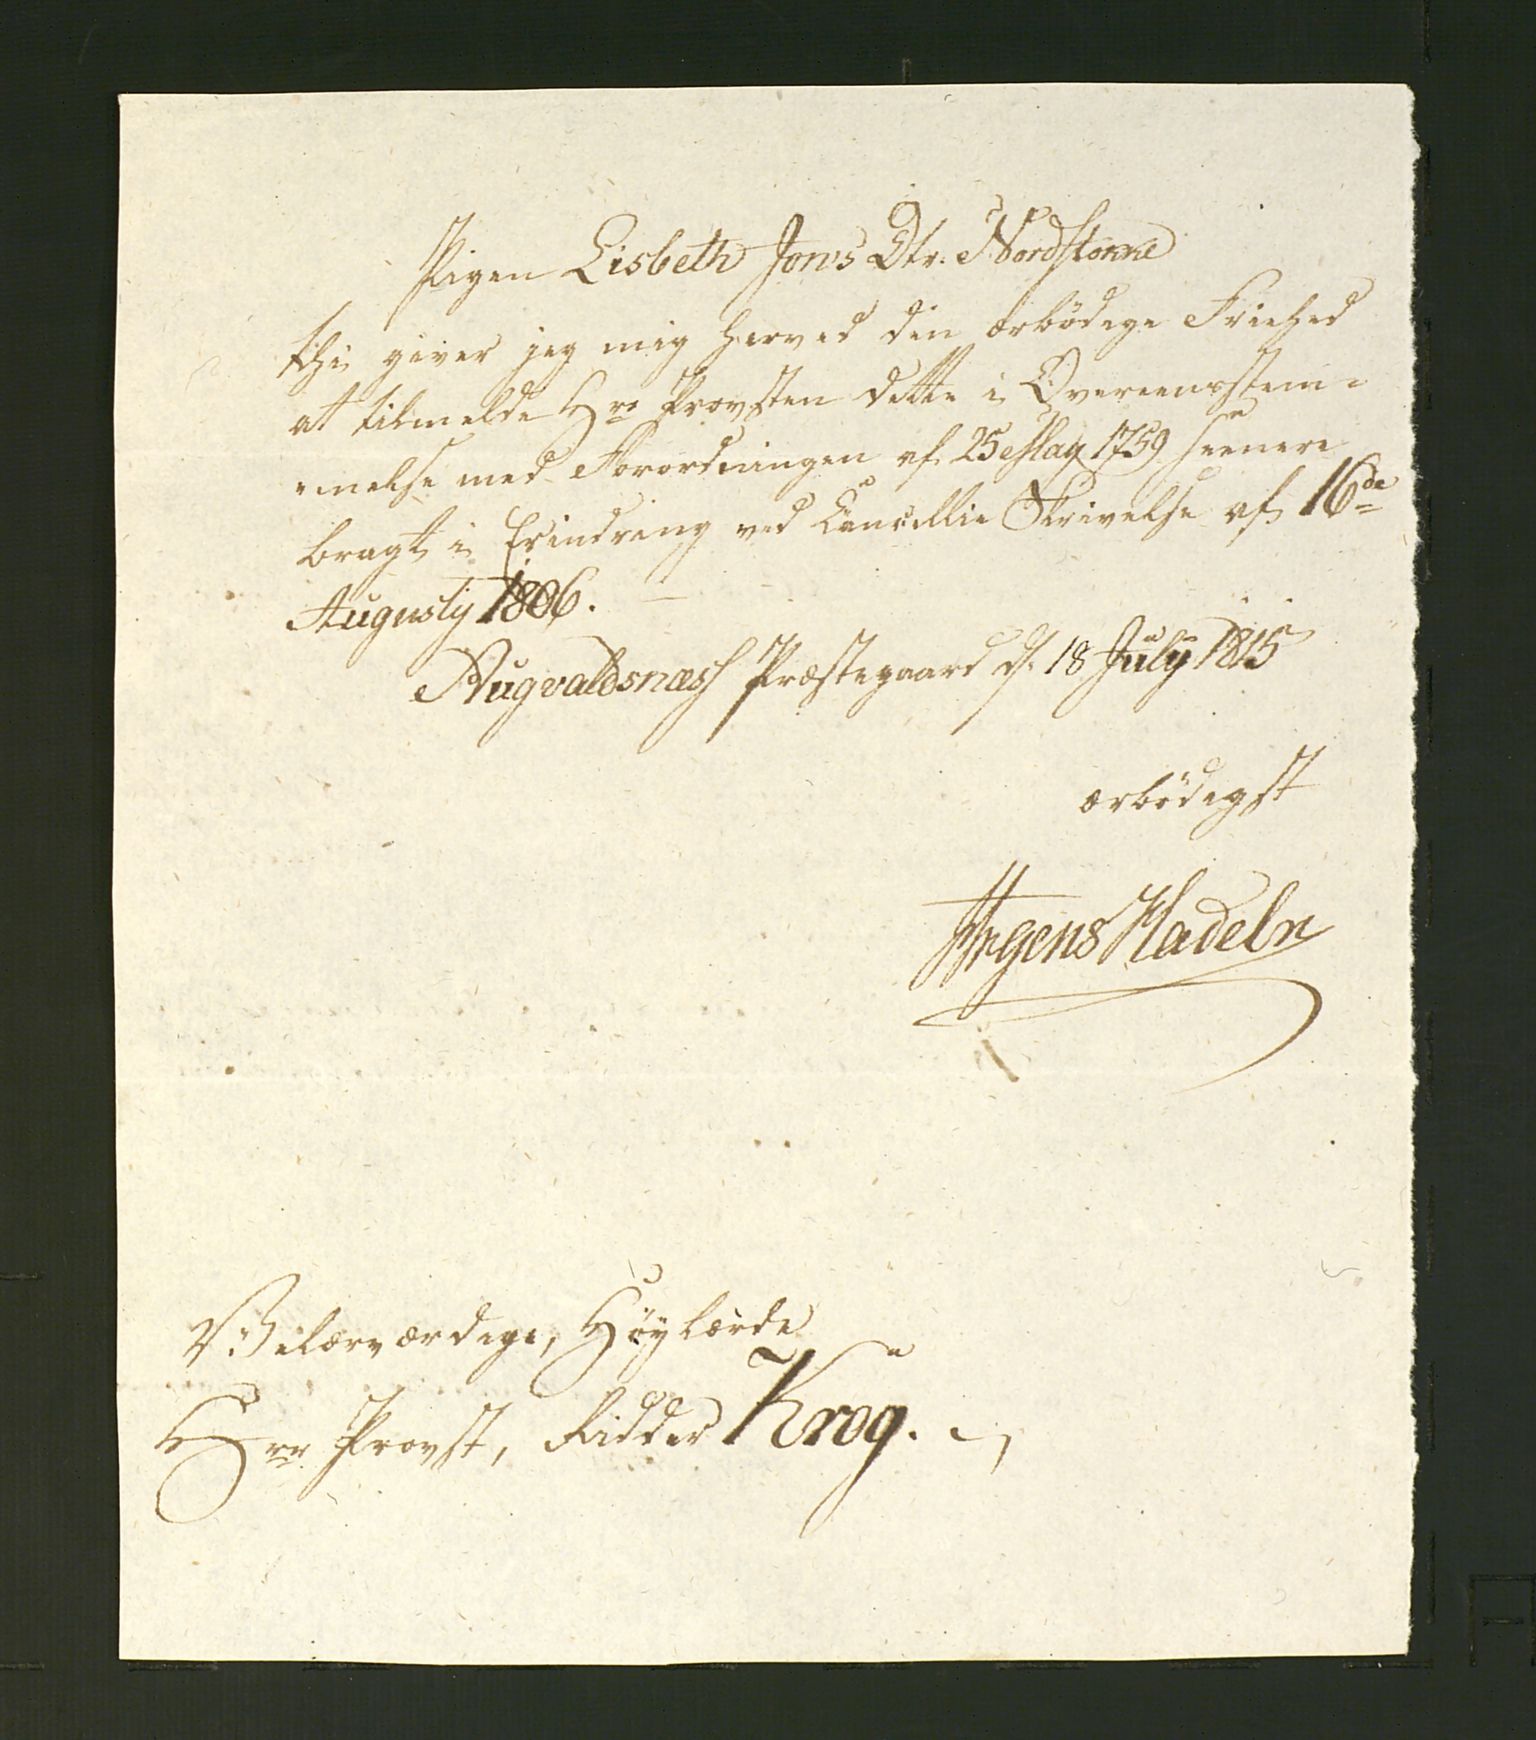 Pigen Lisbeth Jons Dtr. Nordstokke
thi giver jeg mig herved den ærbødige Friehed
at tilmelde Hrr Provsten dette i Overeensstem-
-melse med Forordningen af 25 May 1759 seenere
bragt i Erindring ved Cancellie Skrivelse af 16de
Augustij 1806.
Augvaldsnæss Præstegaard d. 18 July 1815
ærbødigst
Irgens Hadeln
Velærværdige, Höylærde
Hrr Provst, Ridder Krog.